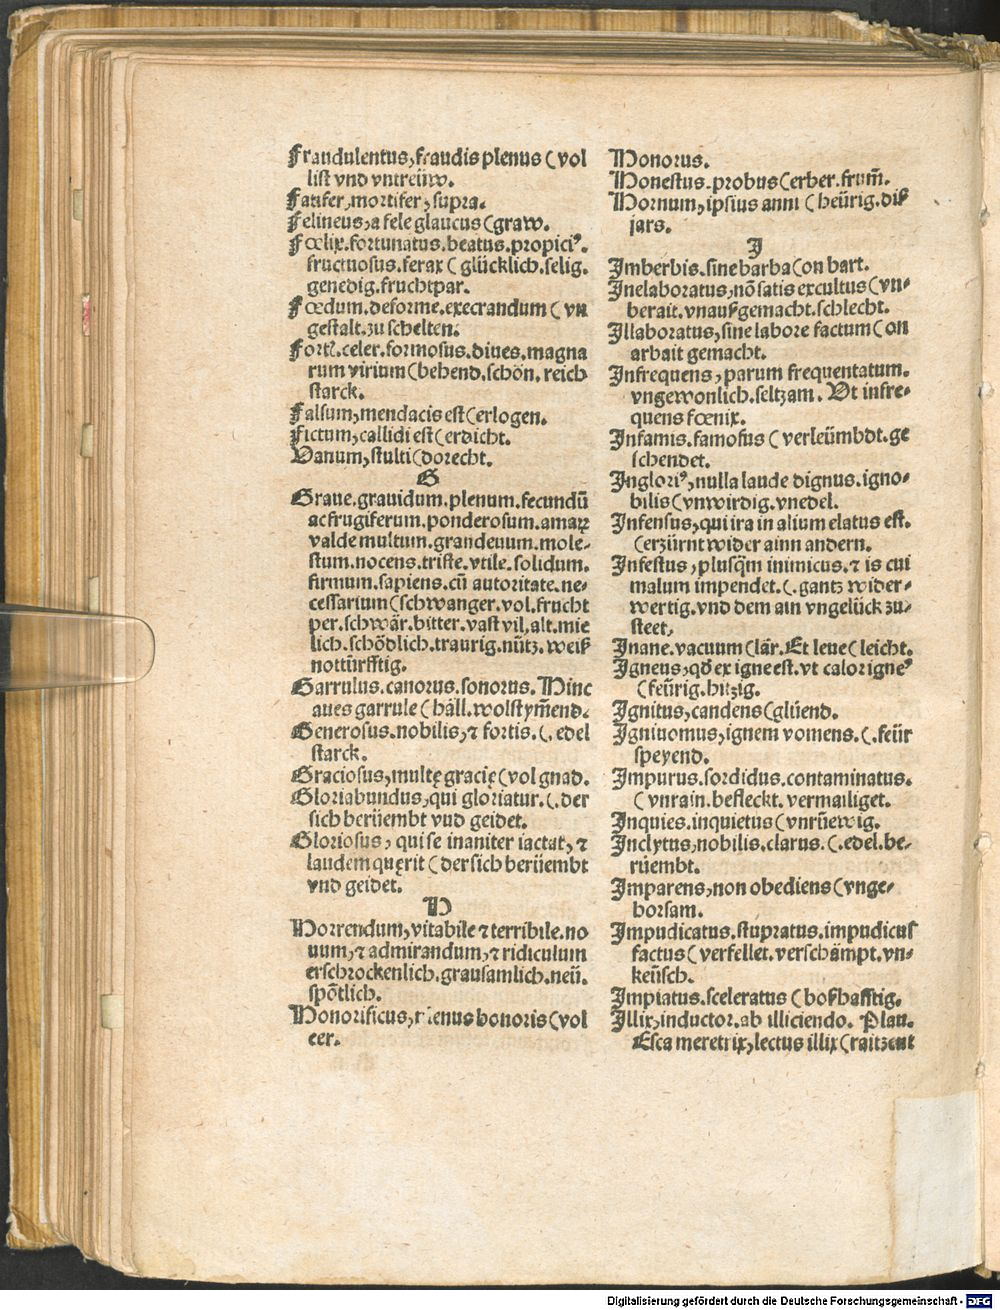 Fraudulentus, fraudis plenus (vol
list vnd vntreüw.
Fatifer, mortifer, supra.
Felineus, a fele glaucus (graw.
Fœlix. fortunatus. beatus. propiciꝰ.
fructuosus. ferax (glücklich. selig.
genedig. fruchtpar.
Fœdum. deforme. execrandum (vn
gestalt. zu schelten.
celer. formosus. diues. magna
rum virium (behend. schön. reich
starck.
Falsum, mendacis est (erlogen.
Fictum, callidi est (erdicht.
Vanum, stulti (dorecht.
G
Graue. grauidum. plenum. fecundū
ac frugiferum. ponderosum. amaꝝ
valde multum. grandeuum. mole-
stum. nocens. triste. vtile. solidum.
firmum. sapiens. cū autoritate. ne-
cessarium (schwanger. vol. frucht
per. schwär. bitter. vast vil, alt. mie
lich. schödlich. traurig. nütz. weiß
nottürfftig.
Garrulus. canorus. sonorus. Hinc
aues garrule (häll. wolstym̄end.
Generosus. nobilis, ⁊ fortis. (. edel
starck.
Graciosus, multę gracię (vol gnad.
Gloriabundus, qui gloriatur. (. der
sich berüembt vnd geidet.
Gloriosus, qui se inaniter iactat, ⁊
laudem quęrit (der sich berüembt
vnd geidet.
H
Horrendum, vitabile ⁊ terribile. no
uum, ⁊ admirandum, ⁊ ridiculum
erschrockenlich. grausamlich. neü.
spötlich.
Honorificus, plenus honoris (vol
eer.
Honorus.
Honestus. probus (erber. frum̄.
Hornum, ipsius anni (heürig. diß
jars.
I
Imberbis. sine barba (on bart.
Inelaboratus, nō satis excultus (vn-
berait. vnaußgemacht. schlecht.
Illaboratus, sine labore factum (on
arbait gemacht.
Infrequens, parum frequentatum.
vngewonlich. seltzam. Vt infre-
quens fœnix.
Infamis. famosus (verleümbdt. ge
schendet.
Ingloriꝰ, nulla laude dignus. igno-
bilis (vnwirdig. vnedel.
Infensus, qui ira in alium elatus est.
(erzürnt wider ainn andern.
Infestus, plusq̄m inimicus. ⁊ is cui
malum impendet. (. gantz wider-
wertig. vnd dem ain vngelück zu-
steet,
Inane. vacuum (lär. Et leue (leicht.
Igneus, qđ ex igne est. vt calor igneꝰ
(feürig. hitzig.
Ignitus, candens (glüend.
Igniuomus, ignem vomens. (. feür
speyend.
Impurus. sordidus. contaminatus.
(vnrain. befleckt. vermailiget.
Inquies. inquietus (vnrüewig.
Inclytus, nobilis. clarus. (. edel. be-
rüembt.
Imparens, non obediens (vnge-
horsam.
Impudicatus. stupratus. impudicus
factus (verfellet. verschämpt. vn-
keüsch.
Impiatus. sceleratus (boßhafftig.
Illix, inductor. ab illiciendo. Plau.
Esca meretrix, lectus illix (raitzent
Digitalisierung gefördert durch die Deutsche Forschungsgemeinschaft - DFG